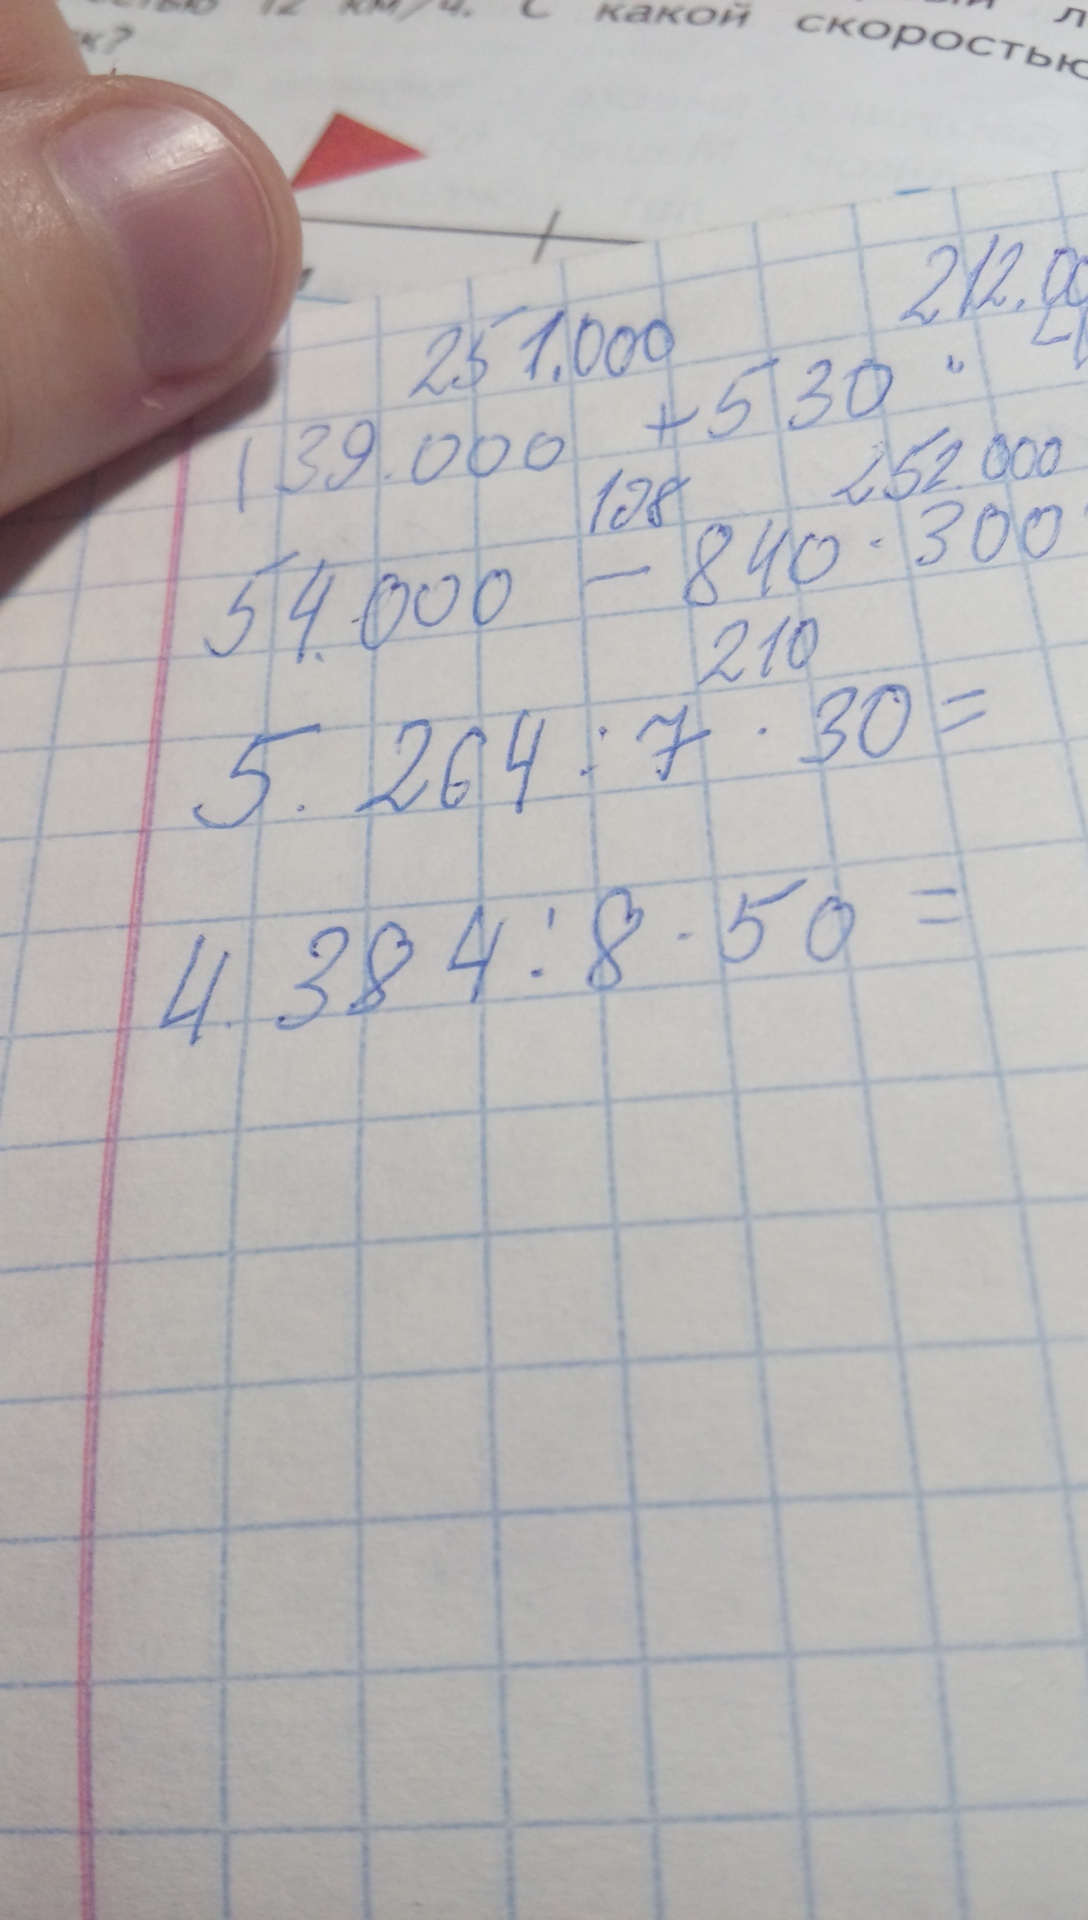 12 км/ч. С какой скоростью
251.000 212.00
139.000 + 530 ·
108 252.000
54.000 - 840 · 300
210
5. 264 : 7 · 30 =
4. 384 : 8 · 50 =